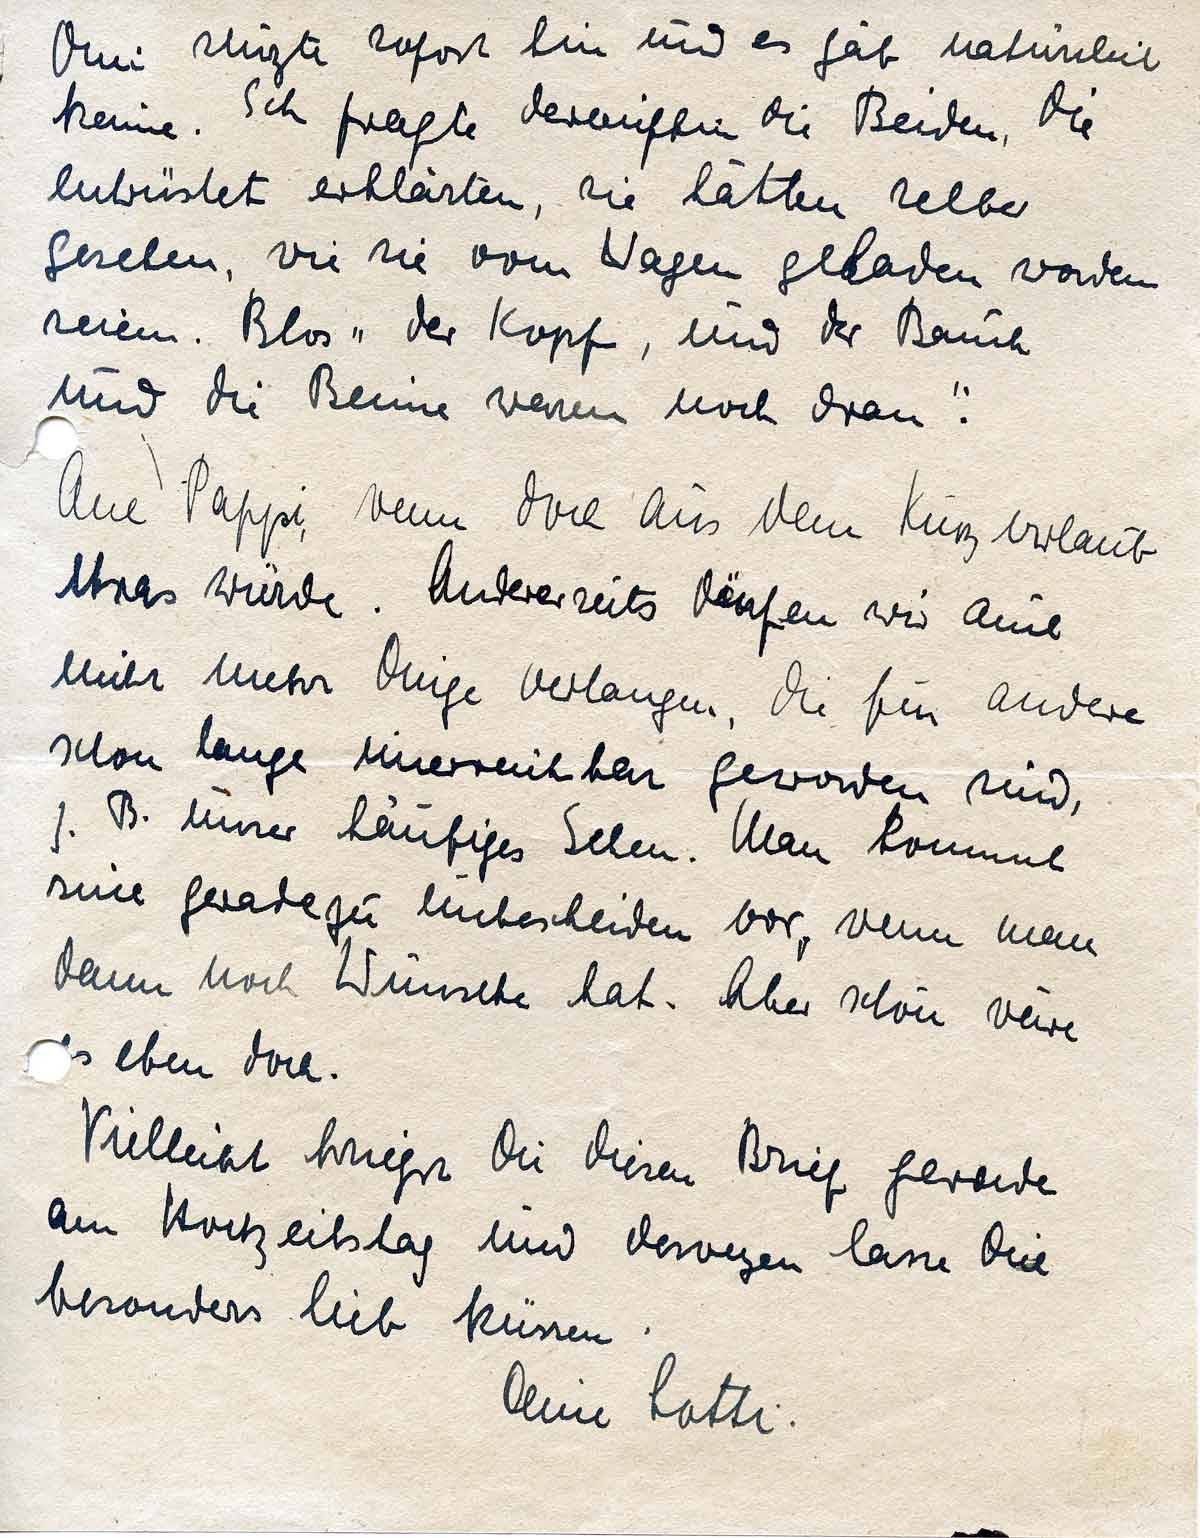 Omi stürzte sofort hin und es gab natürlich
keine. Ich fragte daraufhin die Beiden, die
entrüstet erklärten, sie hätten selber
gesehen, wie sie vom Wagen geladen worden
seien. Blos „der Kopf, und der Bauch
und die Beine waren noch dran".
Ach Pappi, wenn doch aus dem Kurzurlaub
etwas würde. Andererseits dürfen wir auch
nicht mehr Dinge verlangen, die für andere
schon lange unerreichbar geworden sind,
z. B. unser häufiges Sehen. Man kommt
sich geradezu unbescheiden vor, wenn man
dann noch Wünsche hat. Aber schön wäre
es eben doch.
Vielleicht kriegst Du diesen Brief gerade
am Hochzeitstag und deswegen lasse Dich
besonders lieb küssen.
Deine Lotti.